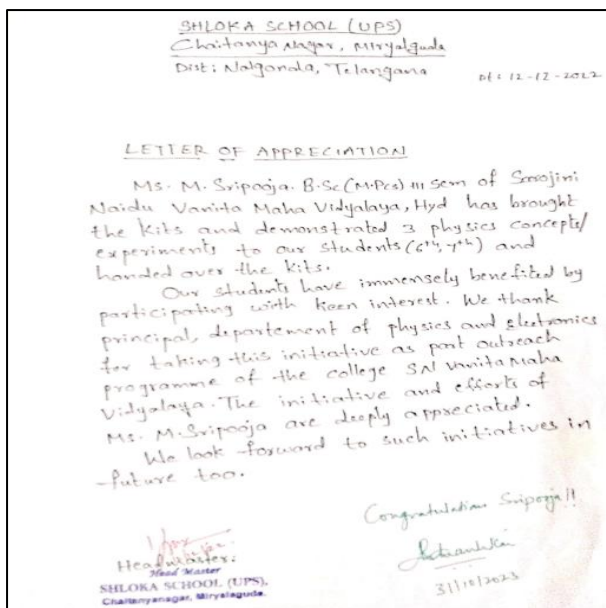 SHLOKA SCHOOL (UPS)
Chaitanya Nagar, Miryalguda
Dist: Nalgonda, Telangana
Dt: 12-12-2022
LETTER OF APPRECIATION
Ms. M. Sripooja. B.Sc (M.Pcs) III sem of Sarojini
Naidu Vanita Maha Vidyalaya, Hyd has brought
the kits and demonstrated 3 physics concepts/
experiments to our students (6th, 7th) and
handed over the kits.
Our students have immensely benefited by
participating with keen interest. We thank
principal, departement of physics and electronics
for taking this initiative as part outreach
programme of the college SN Vanita Maha
Vidyalaya. The initiative and efforts of
Ms. M. Sripooja are deeply appreciated.
We look forward to such initiatives in
future too.
Congratulations Sripooja!!
Headmaster.
Head Master
SHLOKA SCHOOL (UPS),
Chaitanyanagar, Miryalaguda.
31/10/2023